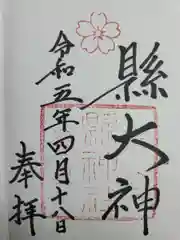 縣大神
令和五年四月十六日
奉拝